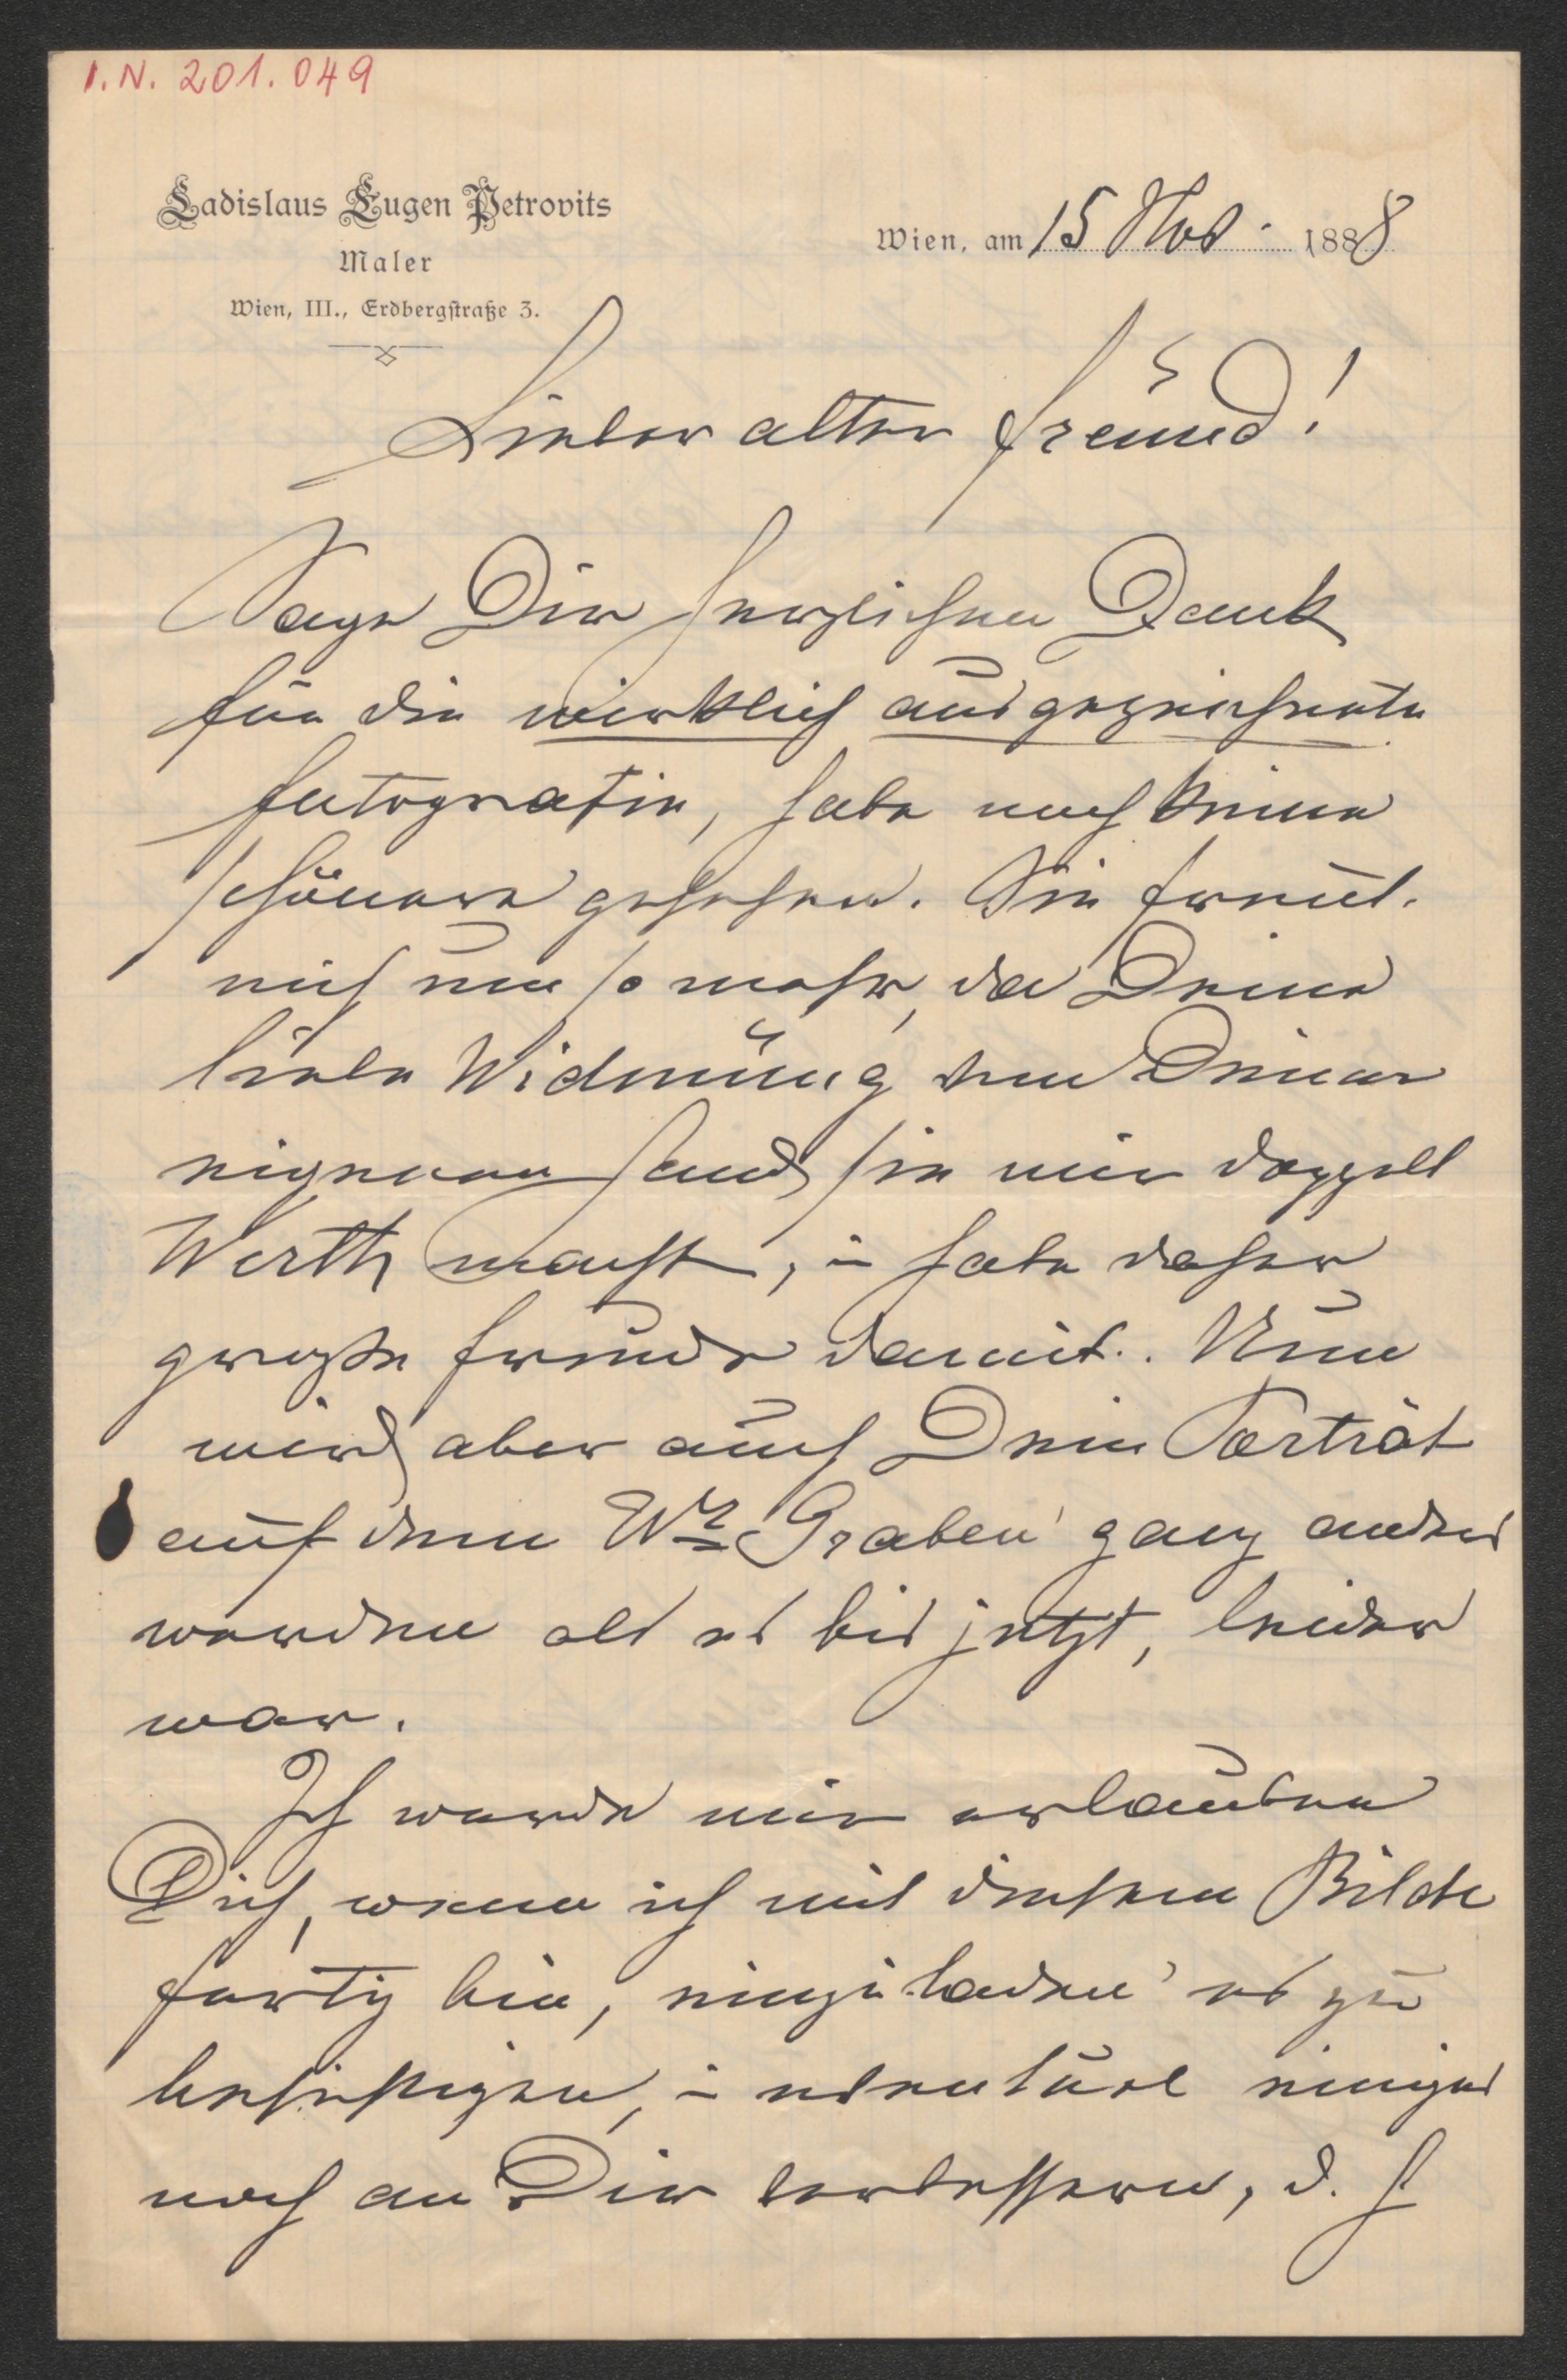 I.N. 201.049
Ladislaus Eugen Petrovits
Maler
Wien, III., Erdbergstraße 3.
Wien, am 15 Nov. 1888
Lieber alter Freund!
Sage Dir herzlichen Dank
für die wirklich ausgezeichnete
Fotografie, habe noch keine
schönere gesehen. Sie freut
mich um so mehr, da Deine
liebe Widmung von Deiner
eigenen Hand sie mir doppelt
Werth macht, u habe daher
große Freude damit. Nun
wird aber auch Dein Porträt
auf dem Wr Graben ganz anders
werden als es bis jetzt, leider
war.
Ich werde mir erlauben
Dich, wenn ich mit diesem Bilde
fertig bin, einzuladen es zu
besichtigen, u eventuel einiges
noch an Dir verbessern, d. h